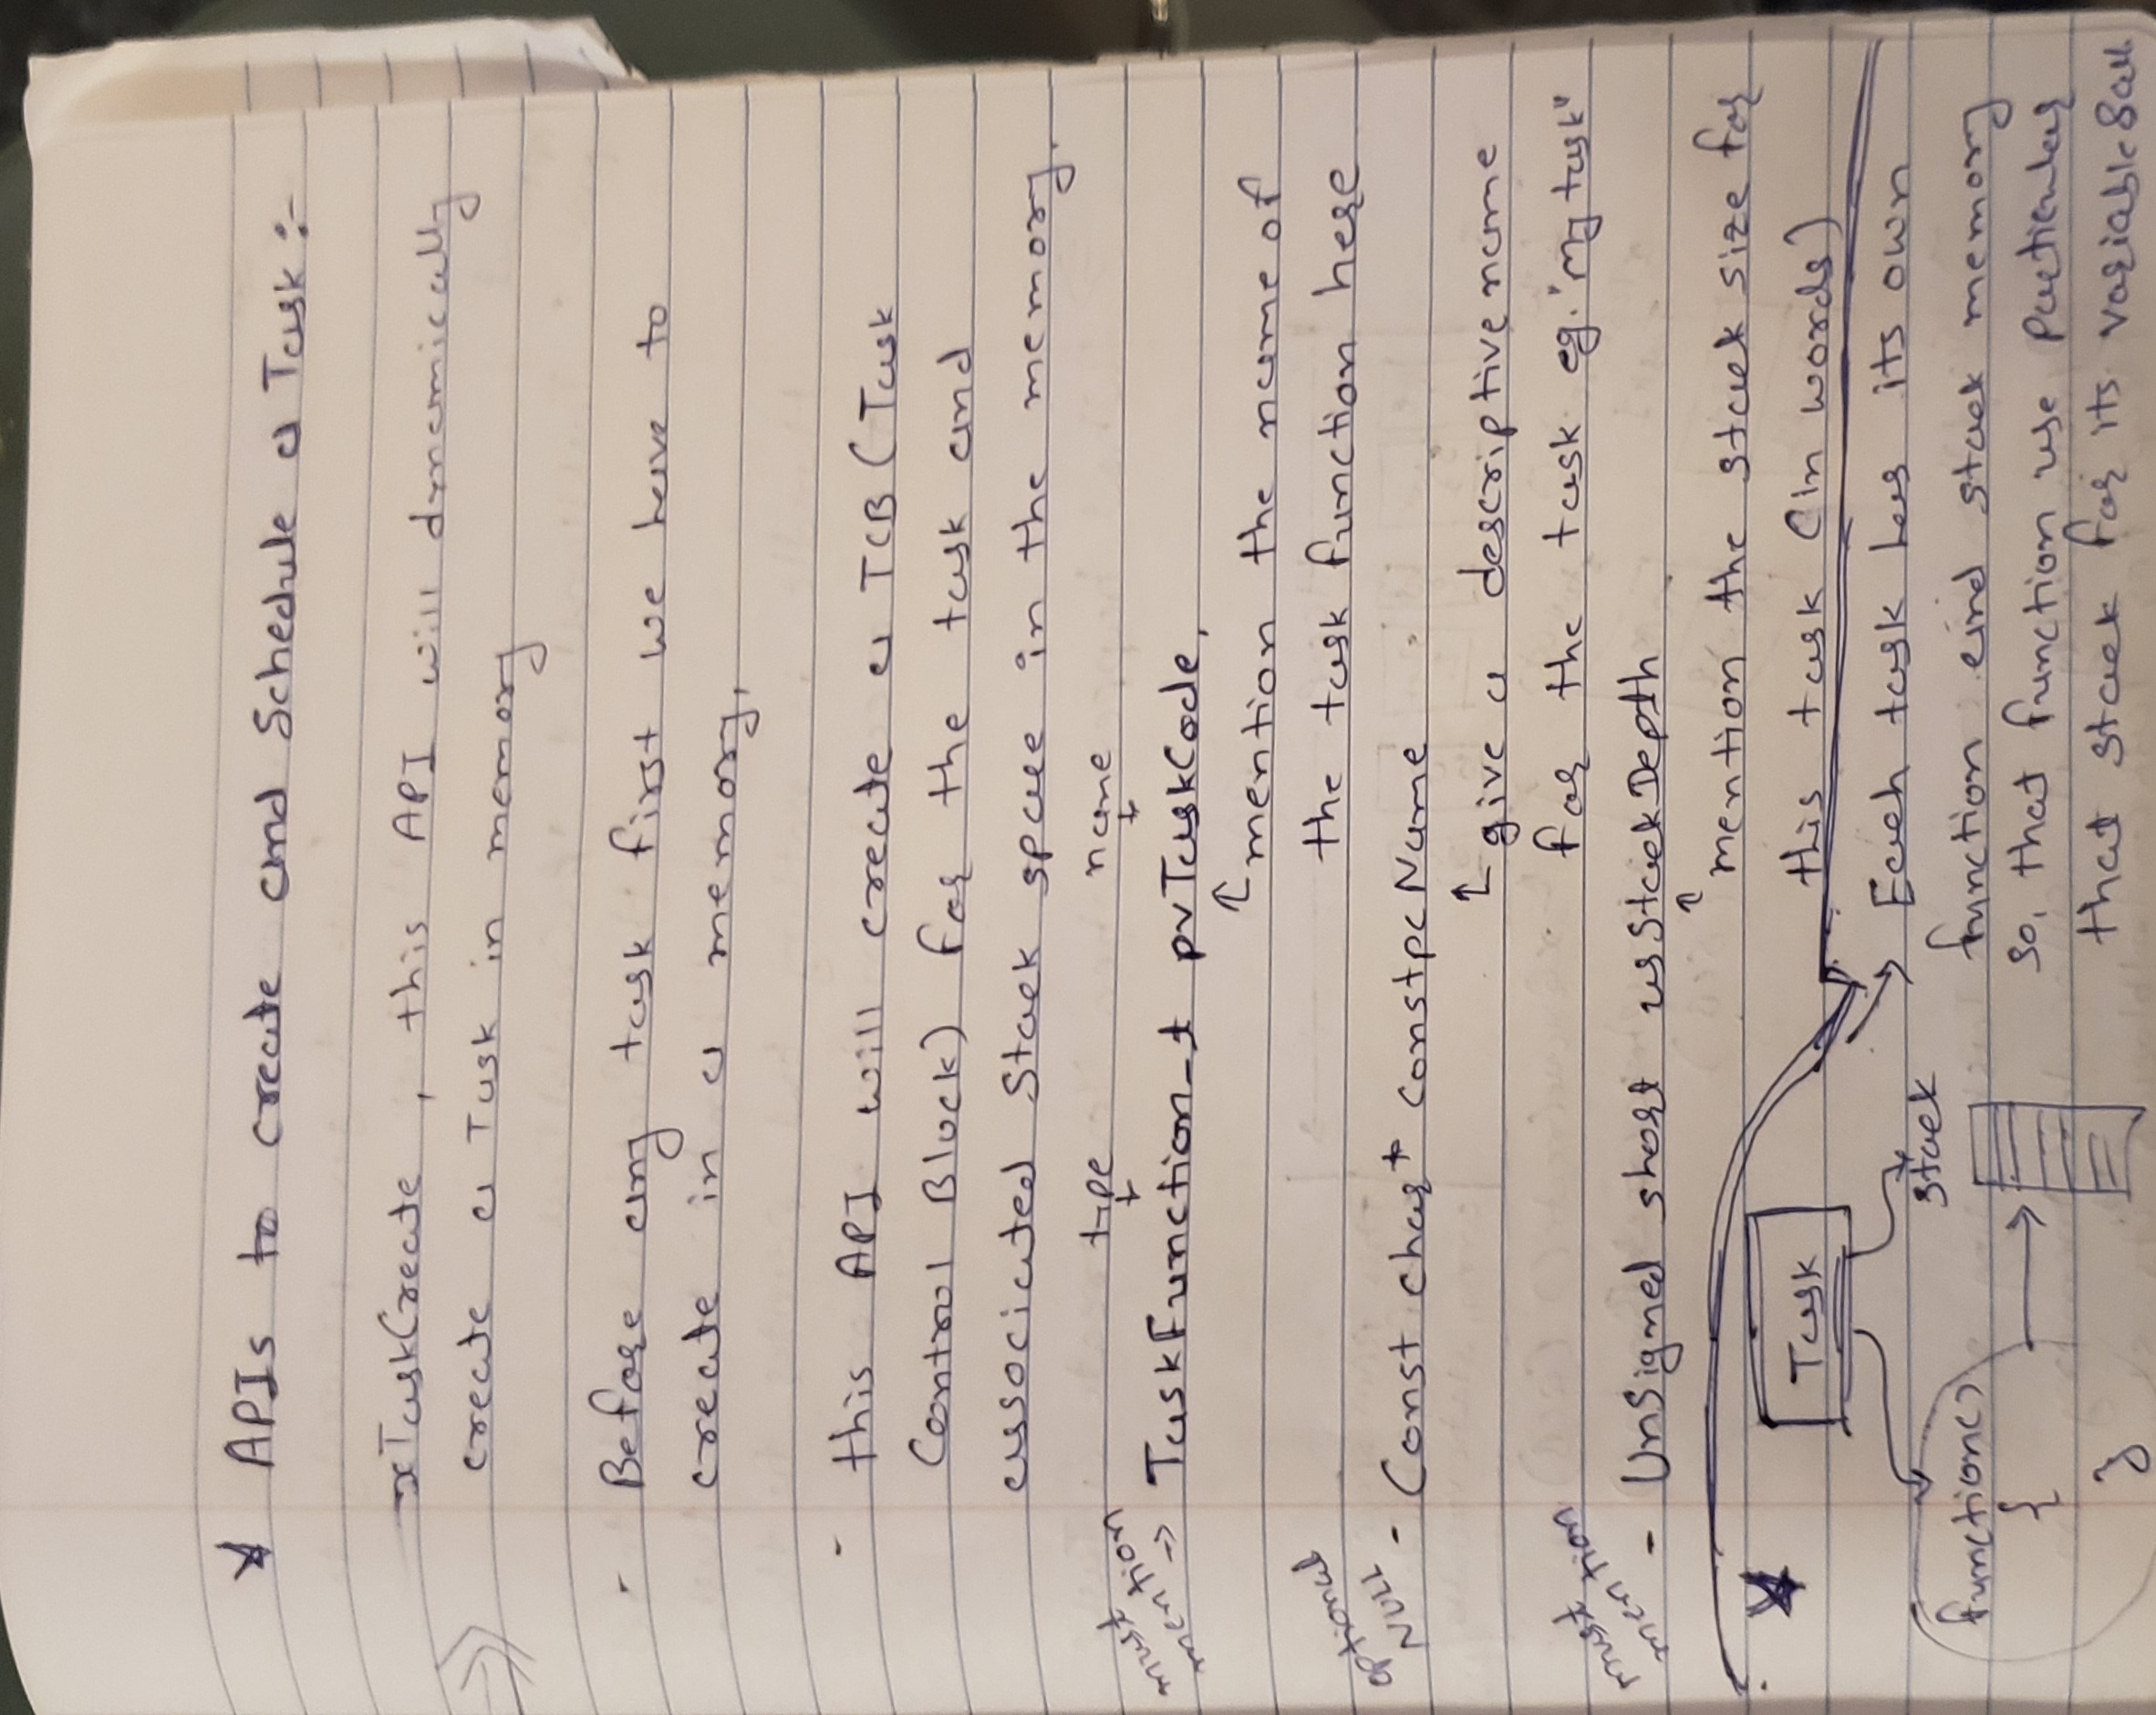 APIs to create and Schedule a Task :-
xTaskCreate, this API will dynamically
create a Task in memory
- Before any task first we have to
create in a memory,
- this API will create a TCB (Task
Control Block) for the task and
associated Stack space in the memory.
type name
must mention -> TaskFunction_t pvTaskCode,
mention the name of
the task function here
optional NULL - Const char* constpcName
give a descriptive name
for the task eg. "My task"
must mention - Unsigned short usStackDepth
mention the stack size for
this task (in words)
Task
Each task has its own
stack
function()
function and stack memory
{
so, that function use particular
}
that stack for its variable &